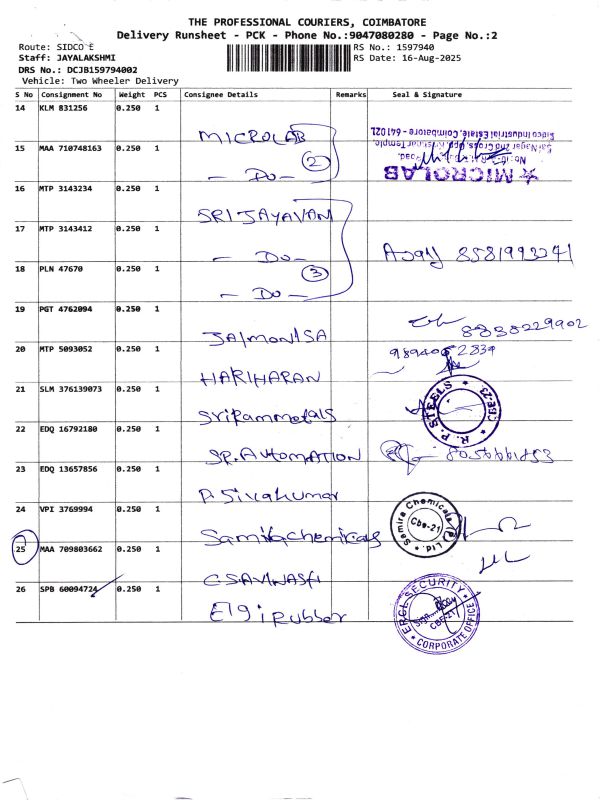 THE PROFESSIONAL COURIERS, COIMBATORE
Delivery Runsheet - PCK - Phone No.:9047080280 - Page No.:2
Route: SIDCO E
RS No.: 1597940
Staff: JAYALAKSHMI
RS Date: 16-Aug-2025
DRS No.: DCJB159794002
Vehicle: Two Wheeler Delivery
S No Consignment No Weight PCS Consignee Details Remarks Seal & Signature
14 KLM 831256 0.250 1 MICROLAB
15 MAA 710748163 0.250 1 - Do - 2
★ MICROLAB
Sai Nagar 2nd Cross, Opp.
Sidco Industrial Estate, Coimbatore - 641 021.
16 MTP 3143234 0.250 1 SRI JAYAVAN
17 MTP 3143412 0.250 1 - Do -
Ajay
18 PLN 47670 0.250 1 - Do - 3
19 PGT 4762094 0.250 1 JAIMONISA
8838229902
20 MTP 5093052 0.250 1 HARIHARAN
21 SLM 376139073 0.250 1 Sri Ram Metals
R. P. STEELS ★ CBE-23 ★
22 EDQ 16792180 0.250 1 SR. AUTOMATION
23 EDQ 13657856 0.250 1 P. Sivakumar
24 VPI 3769994 0.250 1 Samira chemicals
Samira Chemicals (P) Ltd. Cbe-21
25 MAA 709803662 0.250 1 C S AVINASH
26 SPB 60094724 0.250 1 Elgi Rubber
SECURITY CBE-21 ★ CORPORATE OFFICE ★